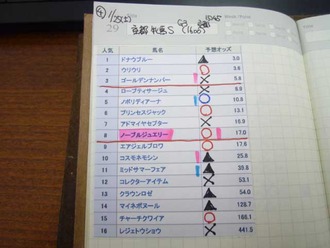 ④ 1/25(土)
京都 牝馬S (1600)
G3
1 ドナウブルー 3.0
2 ウリウリ 3.8
3 ゴールデンナンバー 5.8
4 ローブティサージュ 6.9
5 ノボリディアーナ 10.8
6 プリンセスジャック 13.1
7 アドマイヤセプター 15.9
8 ノーブルジュエリー 17.0
9 エアジェルブロワ 17.6
10 コスモネモシン 25.6
11 ミッドサマーフェア 35.8
12 コレクターアイテム 53.1
13 クラウンロゼ 54.0
14 マイネボヌール 128.7
15 チャーチクワイア 188.1
16 レジェトウショウ 441.5
馬名
予想オッズ
29